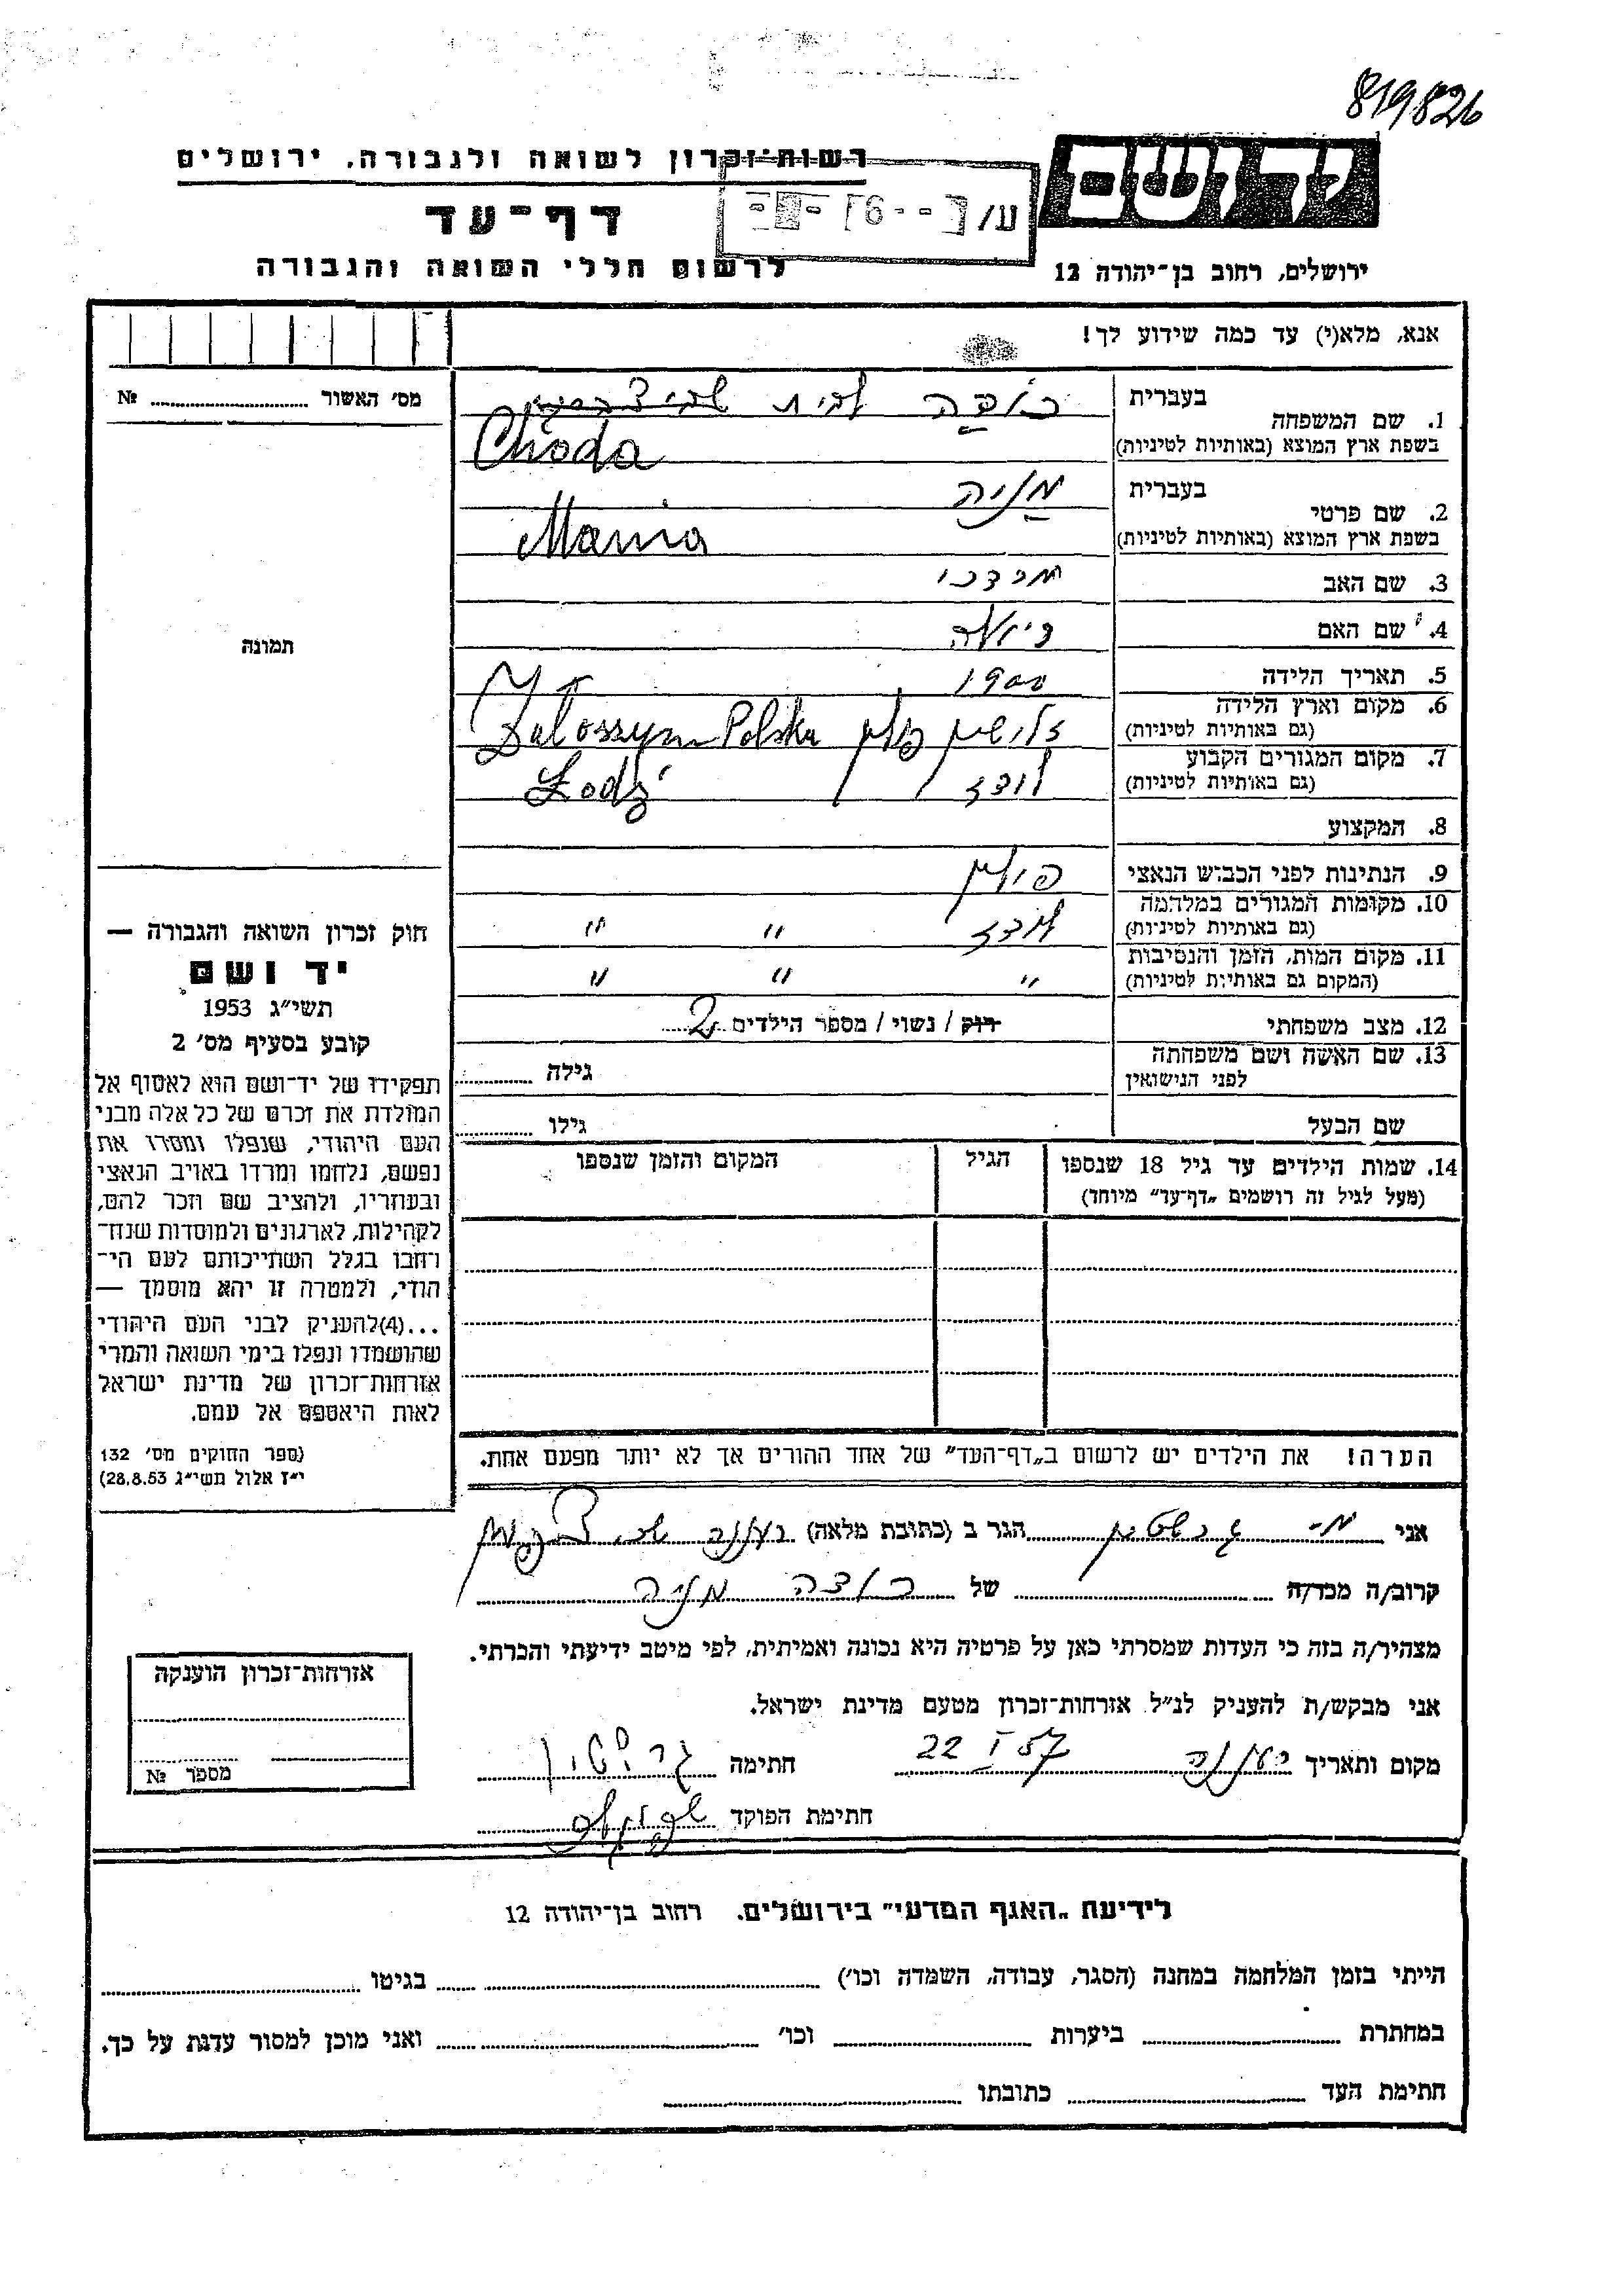 819826
יד ושם
רשות־זכרון לשואה ולגבורה. ירושלים
דף־עד
לרשום חללי השואה והגבורה
ירושלים, רחוב בן־יהודה 12
אנא, מלא(י) עד כמה שידוע לך!
מס׳ האשור № 
1. שם המשפחה
בעברית
בשפת ארץ המוצא (באותיות לטיניות) Choda
2. שם פרטי
בעברית מניה
בשפת ארץ המוצא (באותיות לטיניות) Mania
3. שם האב מרדכי
4. שם האם
5. תאריך הלידה 1900
6. מקום וארץ הלידה
(גם באותיות לטיניות) פולין Polska
7. מקום המגורים הקבוע
(גם באותיות לטיניות) לודז Łodź
8. המקצוע
9. הנתינות לפני הכבוש הנאצי פולין
10. מקומות המגורים במלחמה
(גם באותיות לטיניות) לודז " "
11. מקום המות, הזמן והנסיבות
(המקום גם באותיות לטיניות) " " "
12. מצב משפחתי רוק / נשוי / מספר הילדים 2
13. שם האשה ושם משפחתה
לפני הנישואין גילה
שם הבעל גילו
14. שמות הילדים עד גיל 18 שנספו
(מעל לגיל זה רושמים „דף־עד״ מיוחד)
הגיל
המקום והזמן שנספו
הערה! את הילדים יש לרשום ב„דף־העד״ של אחד ההורים אך לא יותר מפעם אחת.
תמונה
חוק זכרון השואה והגבורה —
יד ושם
תשי״ג 1953
קובע בסעיף מס׳ 2
תפקידו של יד־ושם הוא לאסוף אל
המולדת את זכרם של כל אלה מבני
העם היהודי, שנפלו ומסרו את
נפשם, נלחמו ומרדו באויב הנאצי
ובעוזריו, ולהציב שם וזכר להם,
לקהילות, לארגונים ולמוסדות שנח־
רחבו בגלל השתייכותם לעם הי־
הודי, ולמטרה זו יהא מוסמך —
...(4)להעניק לבני העם היהודי
שהושמדו ונפלו בימי השואה והמרי
אזרחות־זכרון של מדינת ישראל
לאות היאספם אל עמם.
(ספר החוקים מס׳ 132
י״ז אלול תשי״ג 28.8.53)
אני גרשטין הגר ב (כתובת מלאה) רעננה
קרוב/ה מכר/ה של כודה מניה
מצהיר/ה בזה כי העדות שמסרתי כאן על פרטיה היא נכונה ואמיתית, לפי מיטב ידיעתי והכרתי.
אני מבקש/ת להעניק לנ״ל אזרחות־זכרון מטעם מדינת ישראל.
מקום ותאריך רעננה 22 I 57 חתימה
חתימת הפוקד
אזרחות־זכרון הוענקה
מספר №
לידיעת „האגף המדעי״ בירושלים. רחוב בן־יהודה 12
הייתי בזמן המלחמה במחנה (הסגר, עבודה, השמדה וכו׳) בגיטו
במחתרת ביערות וכו׳ ואני מוכן למסור עדות על כך.
חתימת העד כתובתו